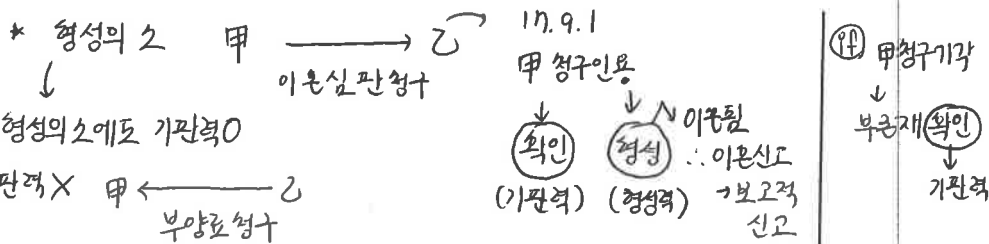 * 형성의 소 甲 → 乙
이혼심판청구
↓
형성의 소에도 기판력O
판력X 甲 ← 乙
부양료청구
17.9.1
甲 청구인용
확인 형성 이혼됨
∴ 이혼신고
(기판력) (형성력) → 보고적
신고
if 甲청구기각
↓
부존재 확인
↓
기판력